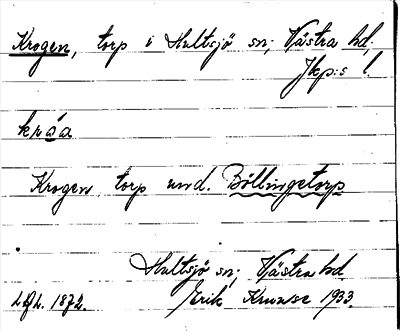 Krogen, torp i Hultsjö sn; Västra hd;
Jkp:s l.
kråa
Krogen, torp und. Böllingetorp
Hultsjö sn; Västra hd
1872. Erik Krause 1933.